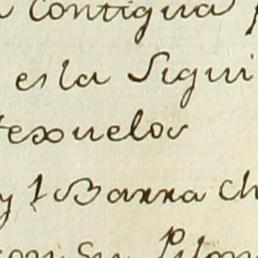 contigua
es la Sigui
texuelos
y 1 Barra Ch
con su Pilon